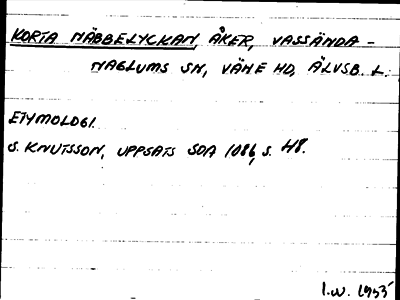 KORTA NÄBBELYCKAN, ÅKER, VASSÄNDA -
NAGLUMS SN, VÄNE HD, ÄLVSB. L.
ETYMOLOGI.
S. KNUTSSON, UPPSATS SOA 1086, S. 48.
I.W. 1955